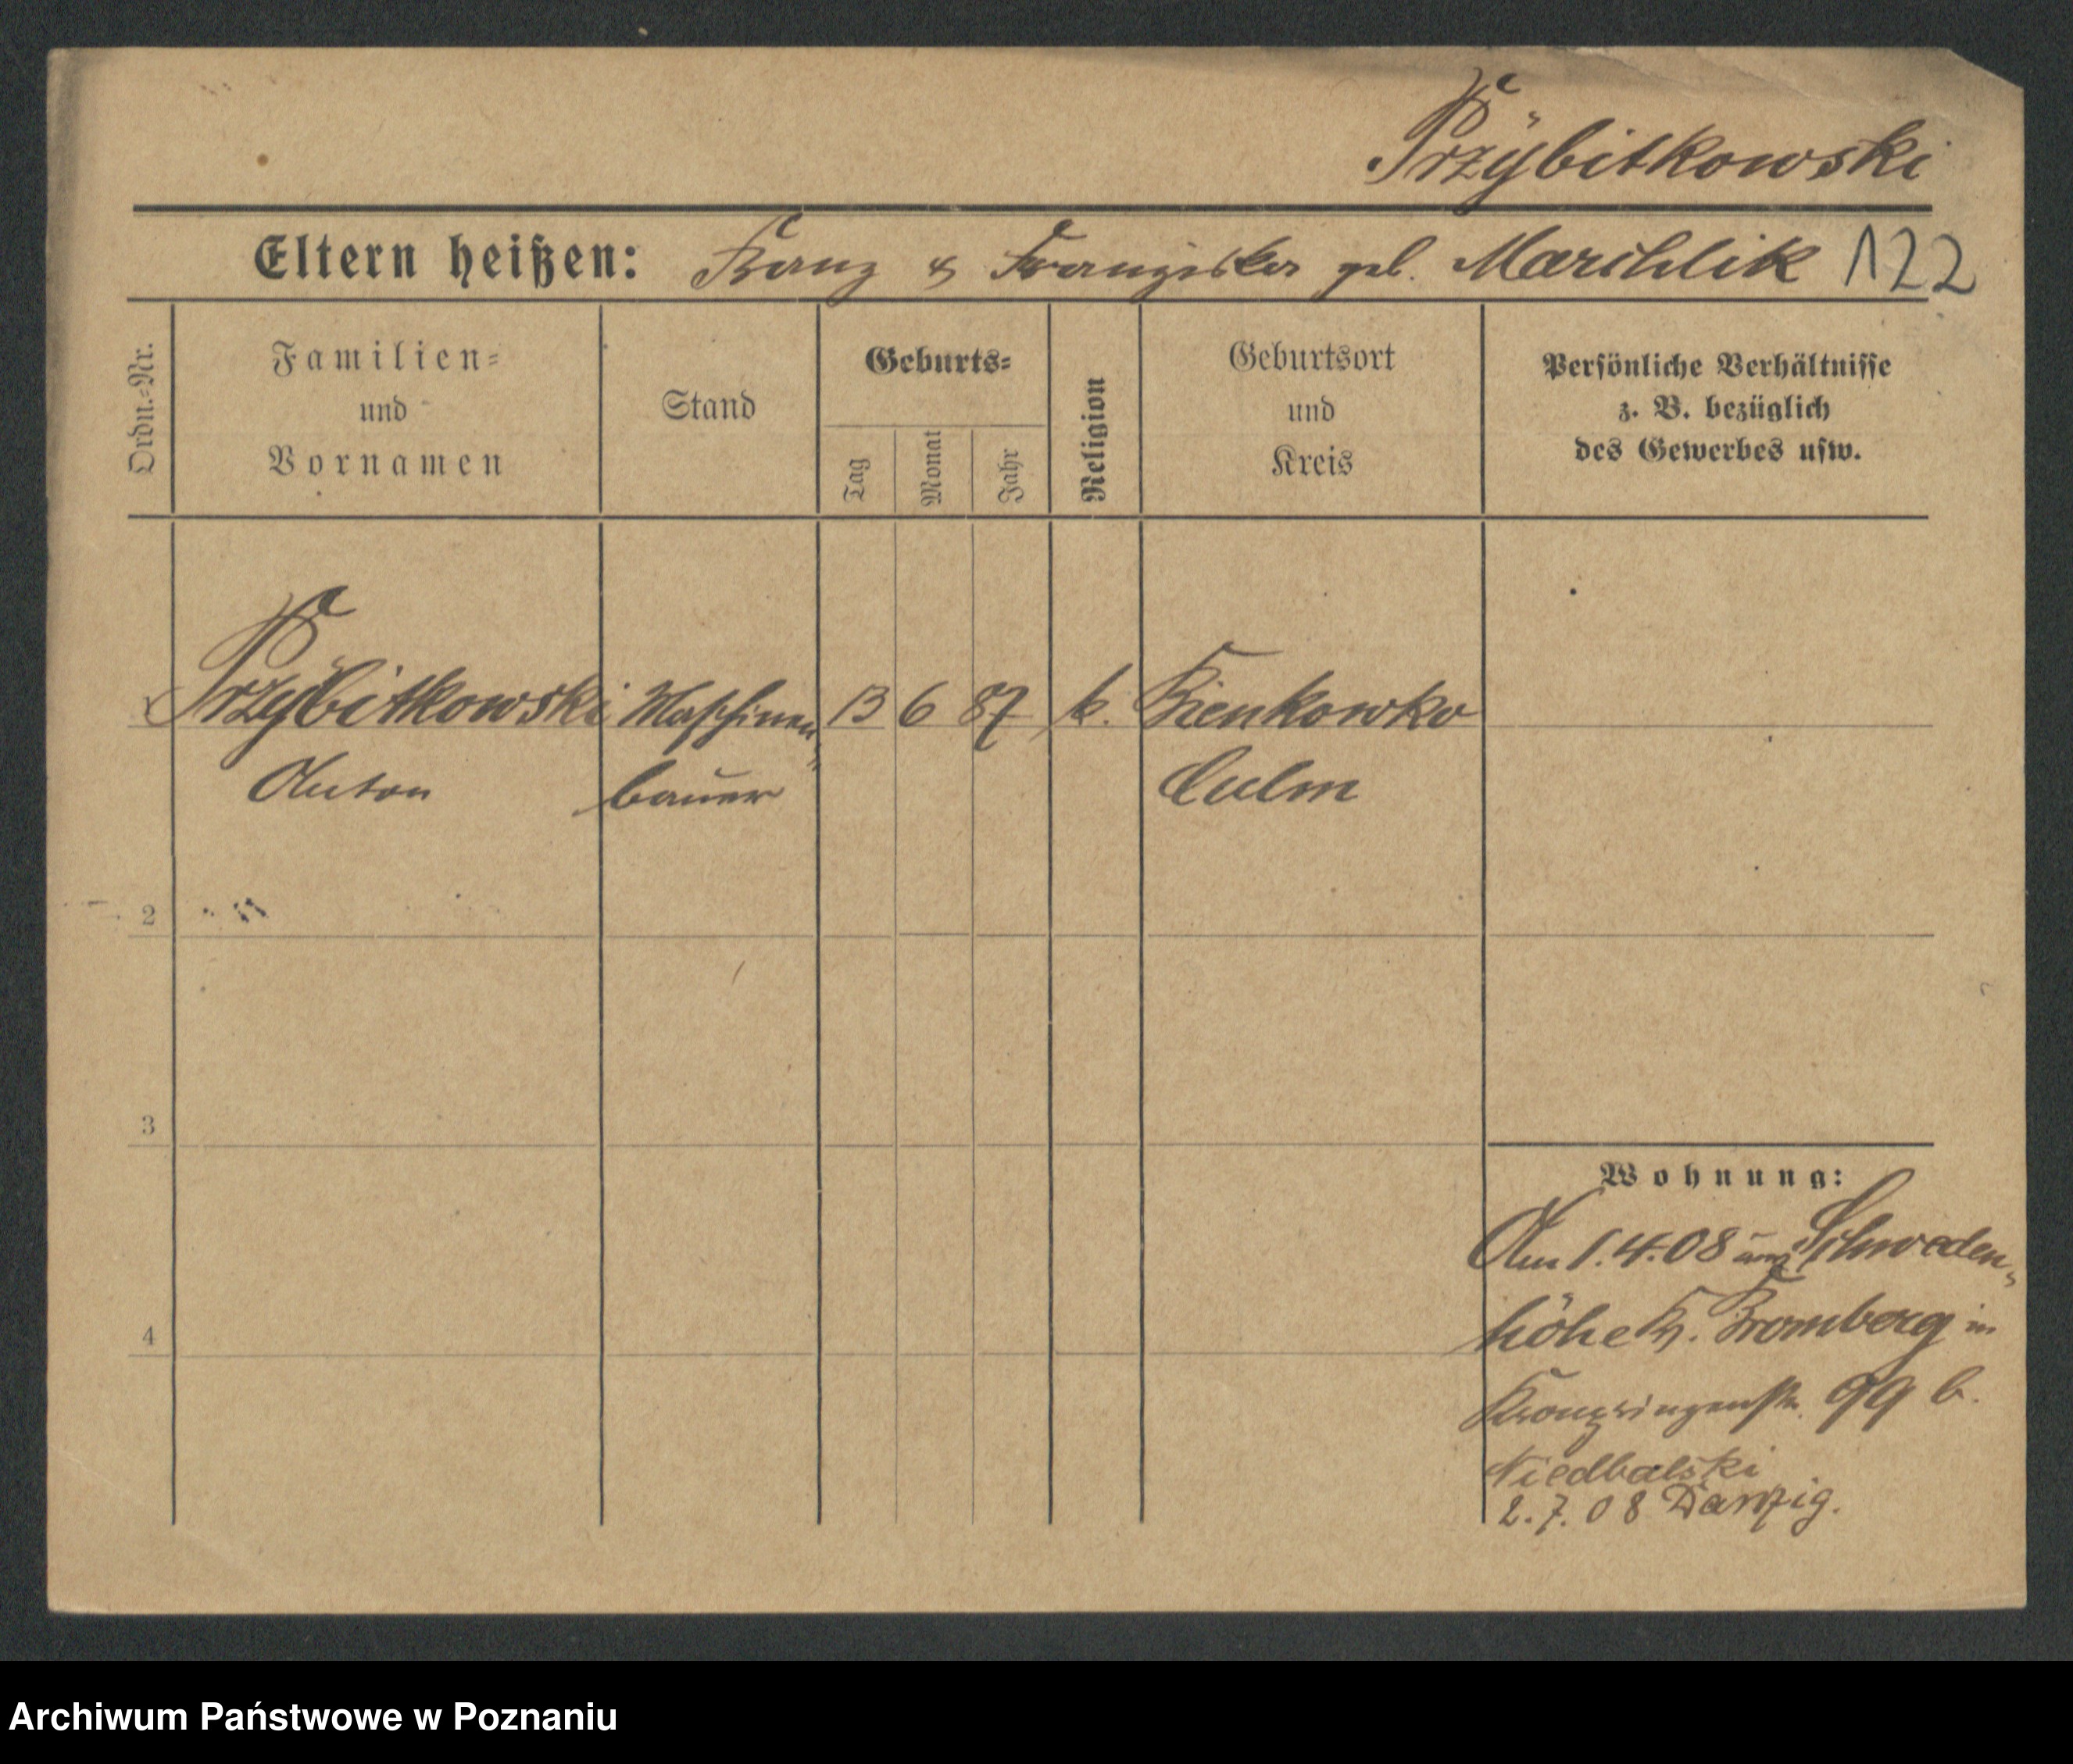 Przÿbitkowski
Eltern heißen: Franz & Franziska geb. Marchlik 122
Ordn.-Nr.
Familien-
und
Vornamen
Stand
Geburts-
Tag
Monat
Jahr
Religion
Geburtsort
und
Kreis
Persönliche Verhältnisse
z. B. bezüglich
des Gewerbes usw.
Przÿbitkowski Maschinen- 13 6 87 k. Bienkowko
Anton bauer Culm
2
3
4
Wohnung:
Am 1.4.08 aus Schweden-
höhe K. Bromberg in
Kronprinzenstr. 99 b.
Niedbalski
2.7.08 Danzig.
Archiwum Państwowe w Poznaniu